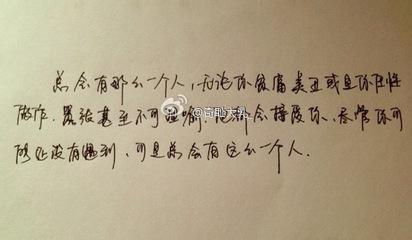 总会有那么一个人,无论你做富美丑或是你任性
做作.嚣张甚至不可理喻.他都会接受你,尽管你可
能还没有遇到,可是总会有这么一个人.
@奇趣大